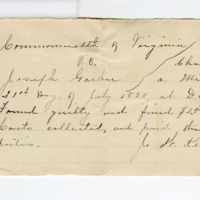 Commonwealth of Virginia
vs.
Joseph Garber a Mi
21st Day of July 1820, at D
Found guilty and fined $2
Costs collected, and paid th
J. W. Ke